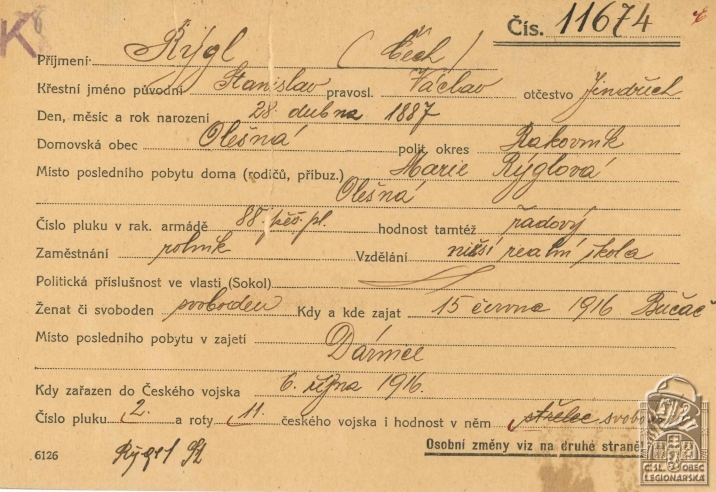 K
Čís. 11674
Příjmení: Rýgl (Čech)
Křestní jméno původní Stanislav pravosl. Václav otčestvo Jindřich
Den, měsíc a rok narození 28. dubna 1887
Domovská obec Olešná polit. okres Rakovník
Místo posledního pobytu doma (rodičů, příbuz.) Marie Rýglová
Olešná
Číslo pluku v rak. armádě 88. pěš. pl. hodnost tamtéž řadový
Zaměstnání rolník Vzdělání nižší realní škola
Politická příslušnost ve vlasti (Sokol)
Ženat či svoboden svoboden Kdy a kde zajat 15 června 1916 Bučač
Místo posledního pobytu v zajetí
Dárnice
Kdy zařazen do Českého vojska 6. října 1916.
Číslo pluku 2. a roty 11. českého vojska i hodnost v něm střelec
Osobní změny viz na druhé straně!
6126 Rýgl St
ČSL. OBEC
LEGIONÁŘSKÁ